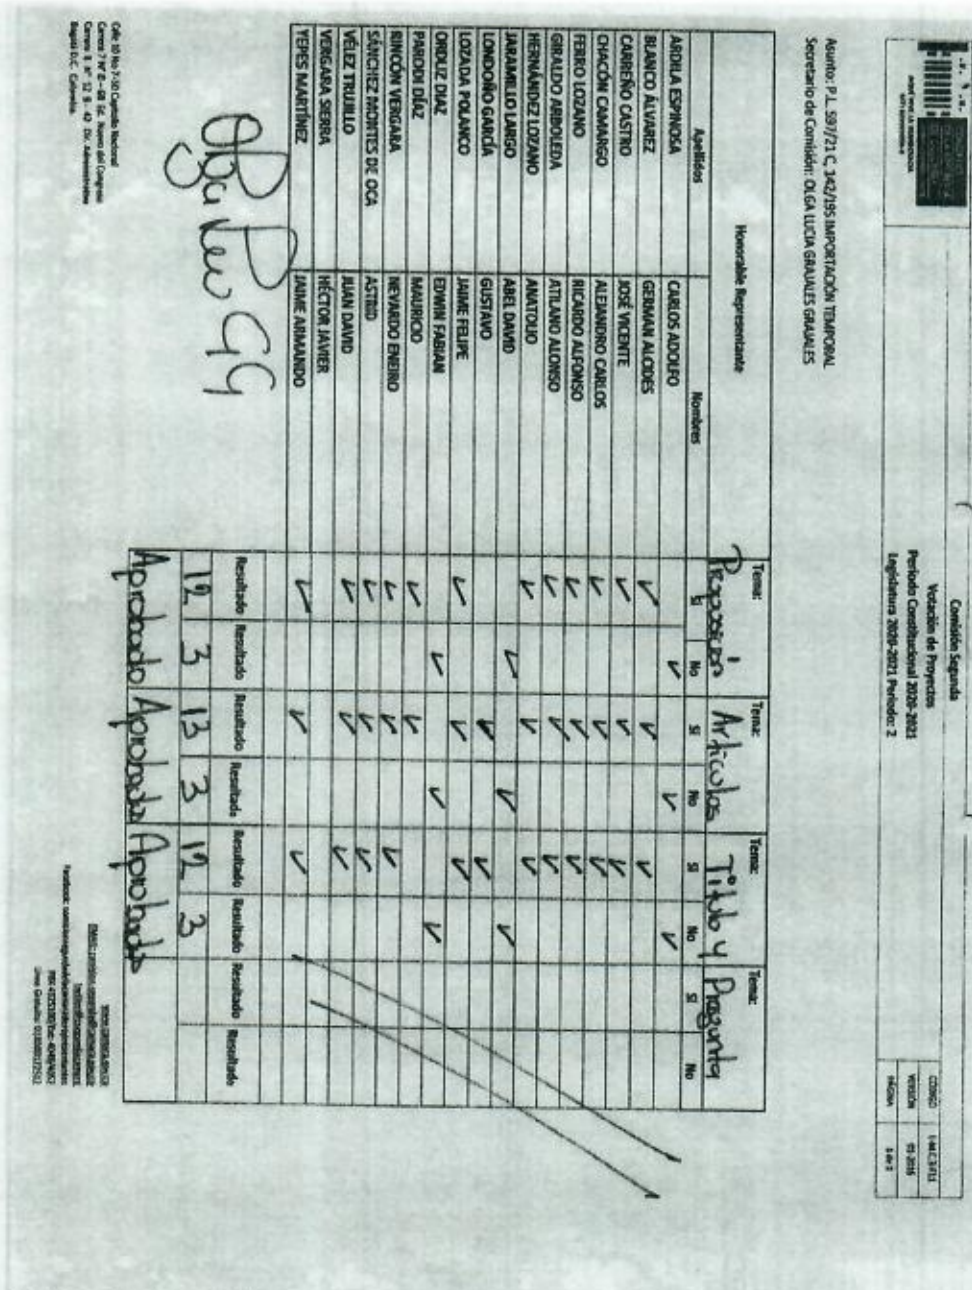 Comisión Segunda
Votación de Proyectos
Periodo Constitucional 2020-2021
Legislatura 2020-2021 Periodo: 2
CÓDIGO
VERSIÓN 01-2016
PÁGINA
Asunto: P.L. 597/21 C, 142/19S IMPORTACIÓN TEMPORAL
Secretario de Comisión: OLGA LUCIA GRAJALES GRAJALES
Honorable Representante Tema: Proposición Tema: Artículos Tema: Título y Tema: Pregunta
Apellidos Nombres Si No Si No Si No Si No
ARDILA ESPINOSA CARLOS ADOLFO ✓ ✓ ✓
BLANCO ÁLVAREZ GERMAN ALCIDES ✓ ✓ ✓
CARREÑO CASTRO JOSÉ VICENTE ✓ ✓ ✓
CHACÓN CAMARGO ALEJANDRO CARLOS ✓ ✓ ✓
FERRO LOZANO RICARDO ALFONSO ✓ ✓ ✓
GIRALDO ARBOLEDA ATILANO ALONSO ✓ ✓ ✓
HERNÁNDEZ LOZANO ANATOLIO ✓ ✓ ✓
JARAMILLO LARGO ABEL DAVID ✓ ✓ ✓
LONDOÑO GARCÍA GUSTAVO ✓ ✓
LOZADA POLANCO JAIME FELIPE ✓ ✓ ✓
ORDUZ DIAZ EDWIN FABIAN ✓ ✓ ✓
PARODI DÍAZ MAURICIO ✓ ✓
RINCÓN VERGARA NEVARDO ENEIRO ✓ ✓ ✓
SÁNCHEZ MONTES DE OCA ASTRID ✓ ✓ ✓
VÉLEZ TRUJILLO JUAN DAVID ✓ ✓ ✓
VERGARA SIERRA HÉCTOR JAVIER
YEPES MARTÍNEZ JAIME ARMANDO ✓ ✓ ✓
Resultado Resultado Resultado Resultado Resultado Resultado Resultado Resultado
12 3 13 3 12 3
Aprobado Aprobado Aprobado
Calle 10 No 7-50 Capitolio Nacional
Carrera 7 N° 8 – 68 Ed. Nuevo del Congreso
Carrera 8 N° 12 B - 42 Dir. Administrativa
Bogotá D.C. Colombia